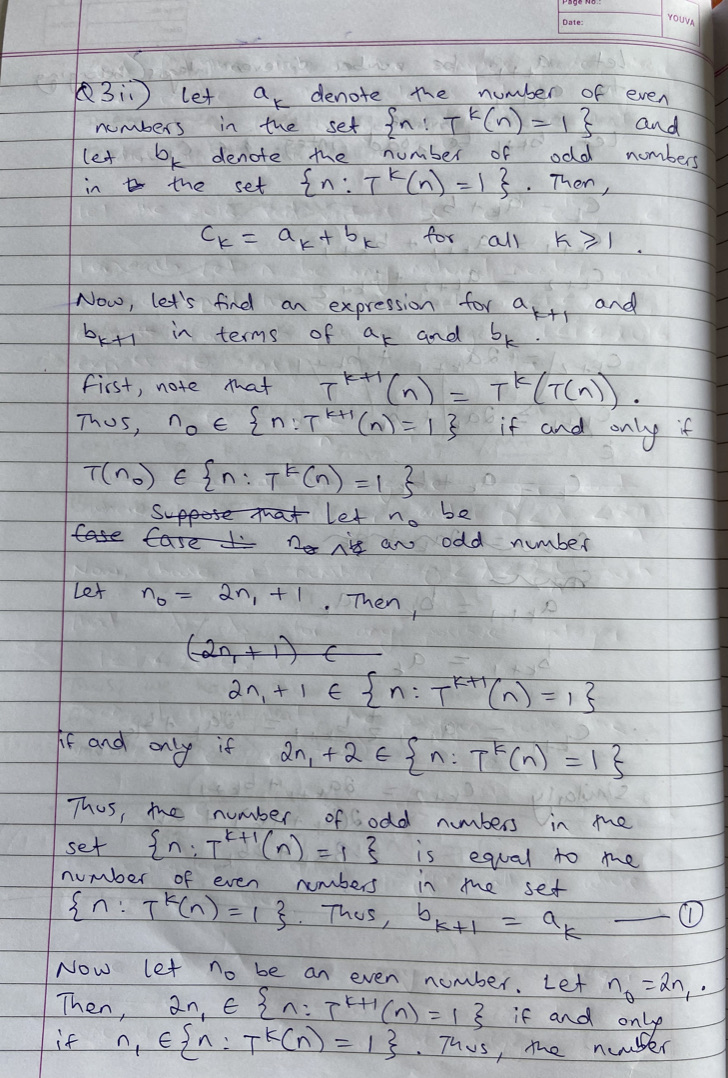 Page No.:
Date:
YOUVA
Q3ii) Let a_k denote the number of even
numbers in the set {n : T^k(n) = 1} and
let b_k denote the number of odd numbers
in to the set {n : T^k(n) = 1}. Then,
C_k = a_k + b_k for all k ⩾ 1.
Now, let's find an expression for a_{k+1} and
b_{k+1} in terms of a_k and b_k.
First, note that T^{k+1}(n) = T^k(T(n)).
Thus, n_0 ∈ {n : T^{k+1}(n) = 1} if and only if
T(n_0) ∈ {n : T^k(n) = 1}
Suppose that Let n_0 be
Case Case 1: n_0 is an odd number
Let n_0 = 2n_1 + 1. Then,
(2n_1 + 1) ∈
2n_1 + 1 ∈ {n : T^{k+1}(n) = 1}
if and only if 2n_1 + 2 ∈ {n : T^k(n) = 1}
Thus, the number of odd numbers in the
set {n : T^{k+1}(n) = 1} is equal to the
number of even numbers in the set
{n : T^k(n) = 1}. Thus, b_{k+1} = a_k — ①
Now let n_0 be an even number. Let n_0 = 2n_1.
Then, 2n_1 ∈ {n : T^{k+1}(n) = 1} if and only
if n_1 ∈ {n : T^k(n) = 1}. Thus, the number